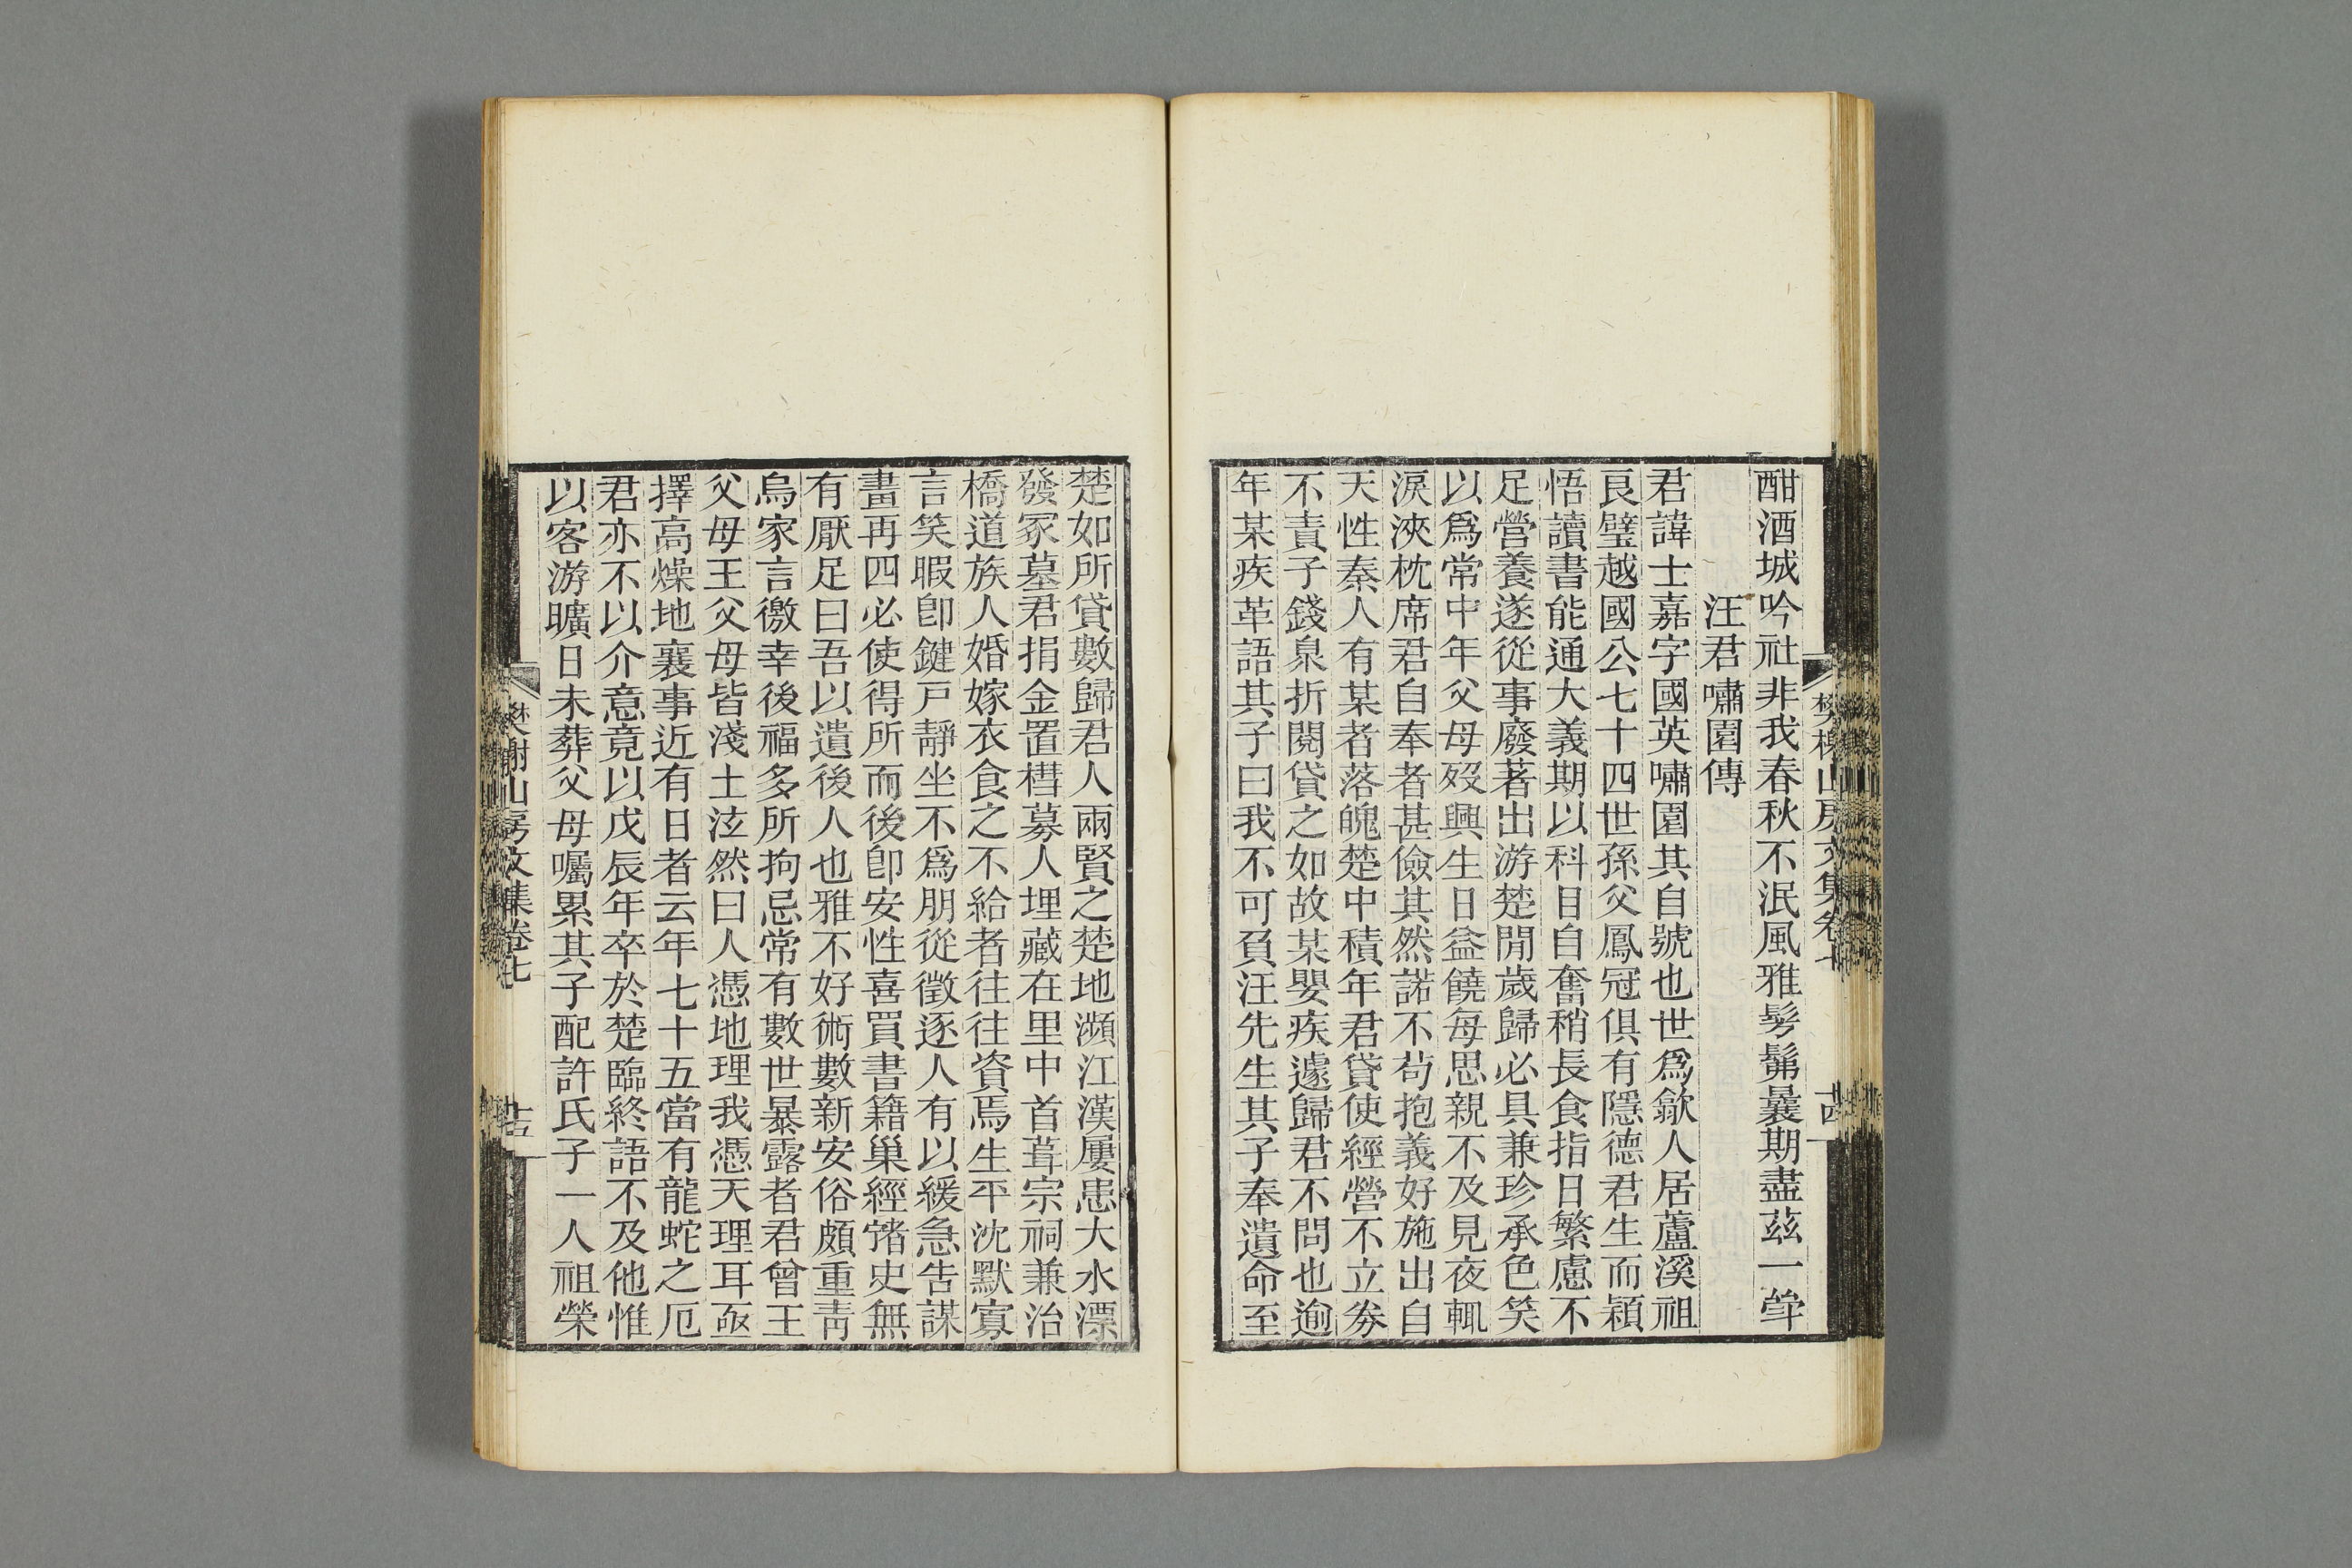 酣酒城吟社非我春秋不泯風雅髣髴曩期盡茲一犖
汪君嘯園傳
君諱士嘉字國英嘯園其自號也世爲歙人居蘆溪祖
良璧越國公七十四世孫父鳳冠俱有隱德君生而穎
悟讀書能通大義期以科目自奮稍長食指日繁慮不
足營養遂從事廢著出游楚閒歲歸必具兼珍承色笑
以爲常中年父母歿興生日益饒每思親不及見夜輒
淚浹枕席君自奉者甚儉其然諾不苟抱義好施出自
天性秦人有某者落魄楚中積年君貸使經營不立劵
不責子錢泉折閱貸之如故某嬰疾遽歸君不問也逾
年某疾革語其子曰我不可負汪先生其子奉遺命至
樊榭山房文集卷七
十四
楚如所貸數歸君人兩賢之楚地瀕江漢屢患大水漂
發冢墓君捐金置槥募人埋藏在里中首葺宗祠兼治
橋道族人婚嫁衣食之不給者往往資焉生平沈默寡
言笑暇卽鍵戸靜坐不爲朋從徵逐人有以緩急告謀
畫再四必使得所而後卽安性喜買書籍巢經㯿史無
有厭足曰吾以遺後人也雅不好術數新安俗頗重靑
烏家言徼幸後福多所拘忌常有數世暴露者君曾王
父母王父母皆淺土泣然曰人憑地理我憑天理耳亟
擇高燥地襄事近有日者云年七十五當有龍蛇之厄
君亦不以介意竟以戊辰年卒於楚臨終語不及他惟
以客游曠日未葬父母囑累其子配許氏子一人祖榮
樊榭山房文集卷七
十五